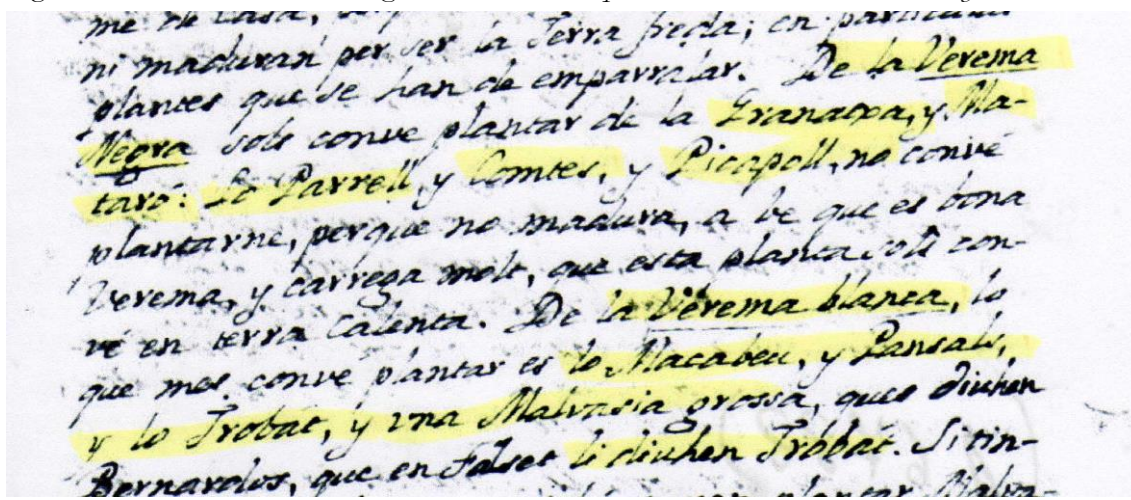 me de casa,
ni maduran per ser la Terra freda; en particular
plantes que se han de emparralar. De la Verema
Negra sols conve plantar de la Granatxa, y Ma-
taró: Lo Parrell, y Comtes, y Picapoll, no convé
plantarne, perque no madura, a be que es bona
Verema, y carrega molt, que esta planta sols con-
vé en terra calenta. De la Verema blanca, lo
que mes conve plantar es lo Macabeu, y Pansals,
y lo Trobat, y una Malvasia grossa, ques diuhen
Bernardos, que en Falset li diuhen Trobat. Si tin-
plantar Malva-